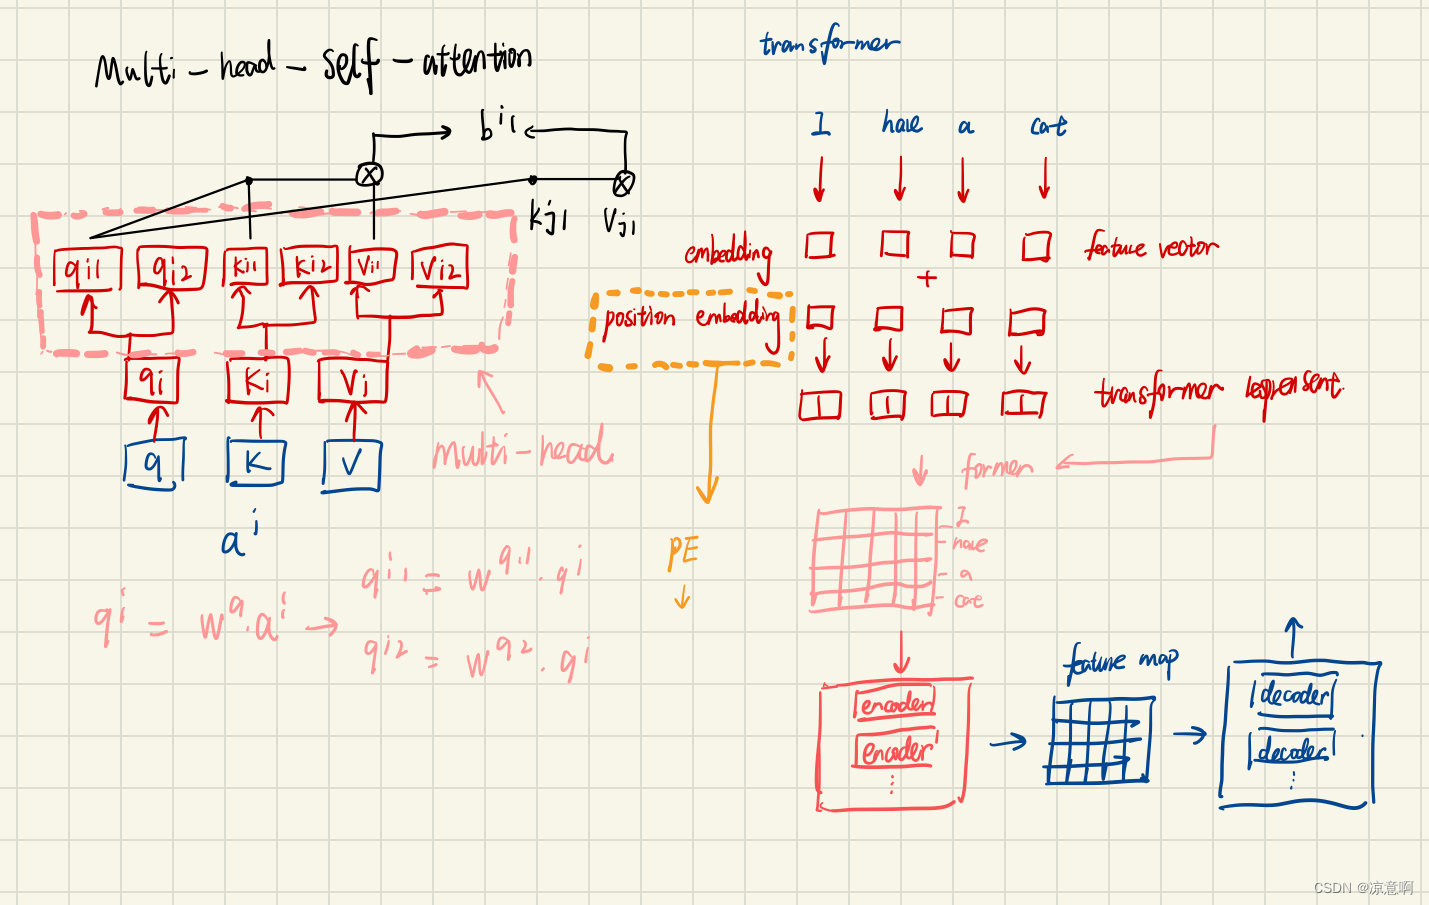 Multi-head-self-attention
b^i1
kj1
Vj1
qi1 qi2 ki1 ki2 Vi1 Vi2
qi Ki Vj
q K V
multi-head
a^i
q^i = w^q·a^i →
q^i1 = w^q,1·q^i
q^i2 = w^q2·q^i
transformer
I have a cat
embedding
feature vector
+
position embedding
transformer represent.
former
PE
I
have
a
cat
encoder
encoder
feature map
decoder
decoder
CSDN @凉意啊